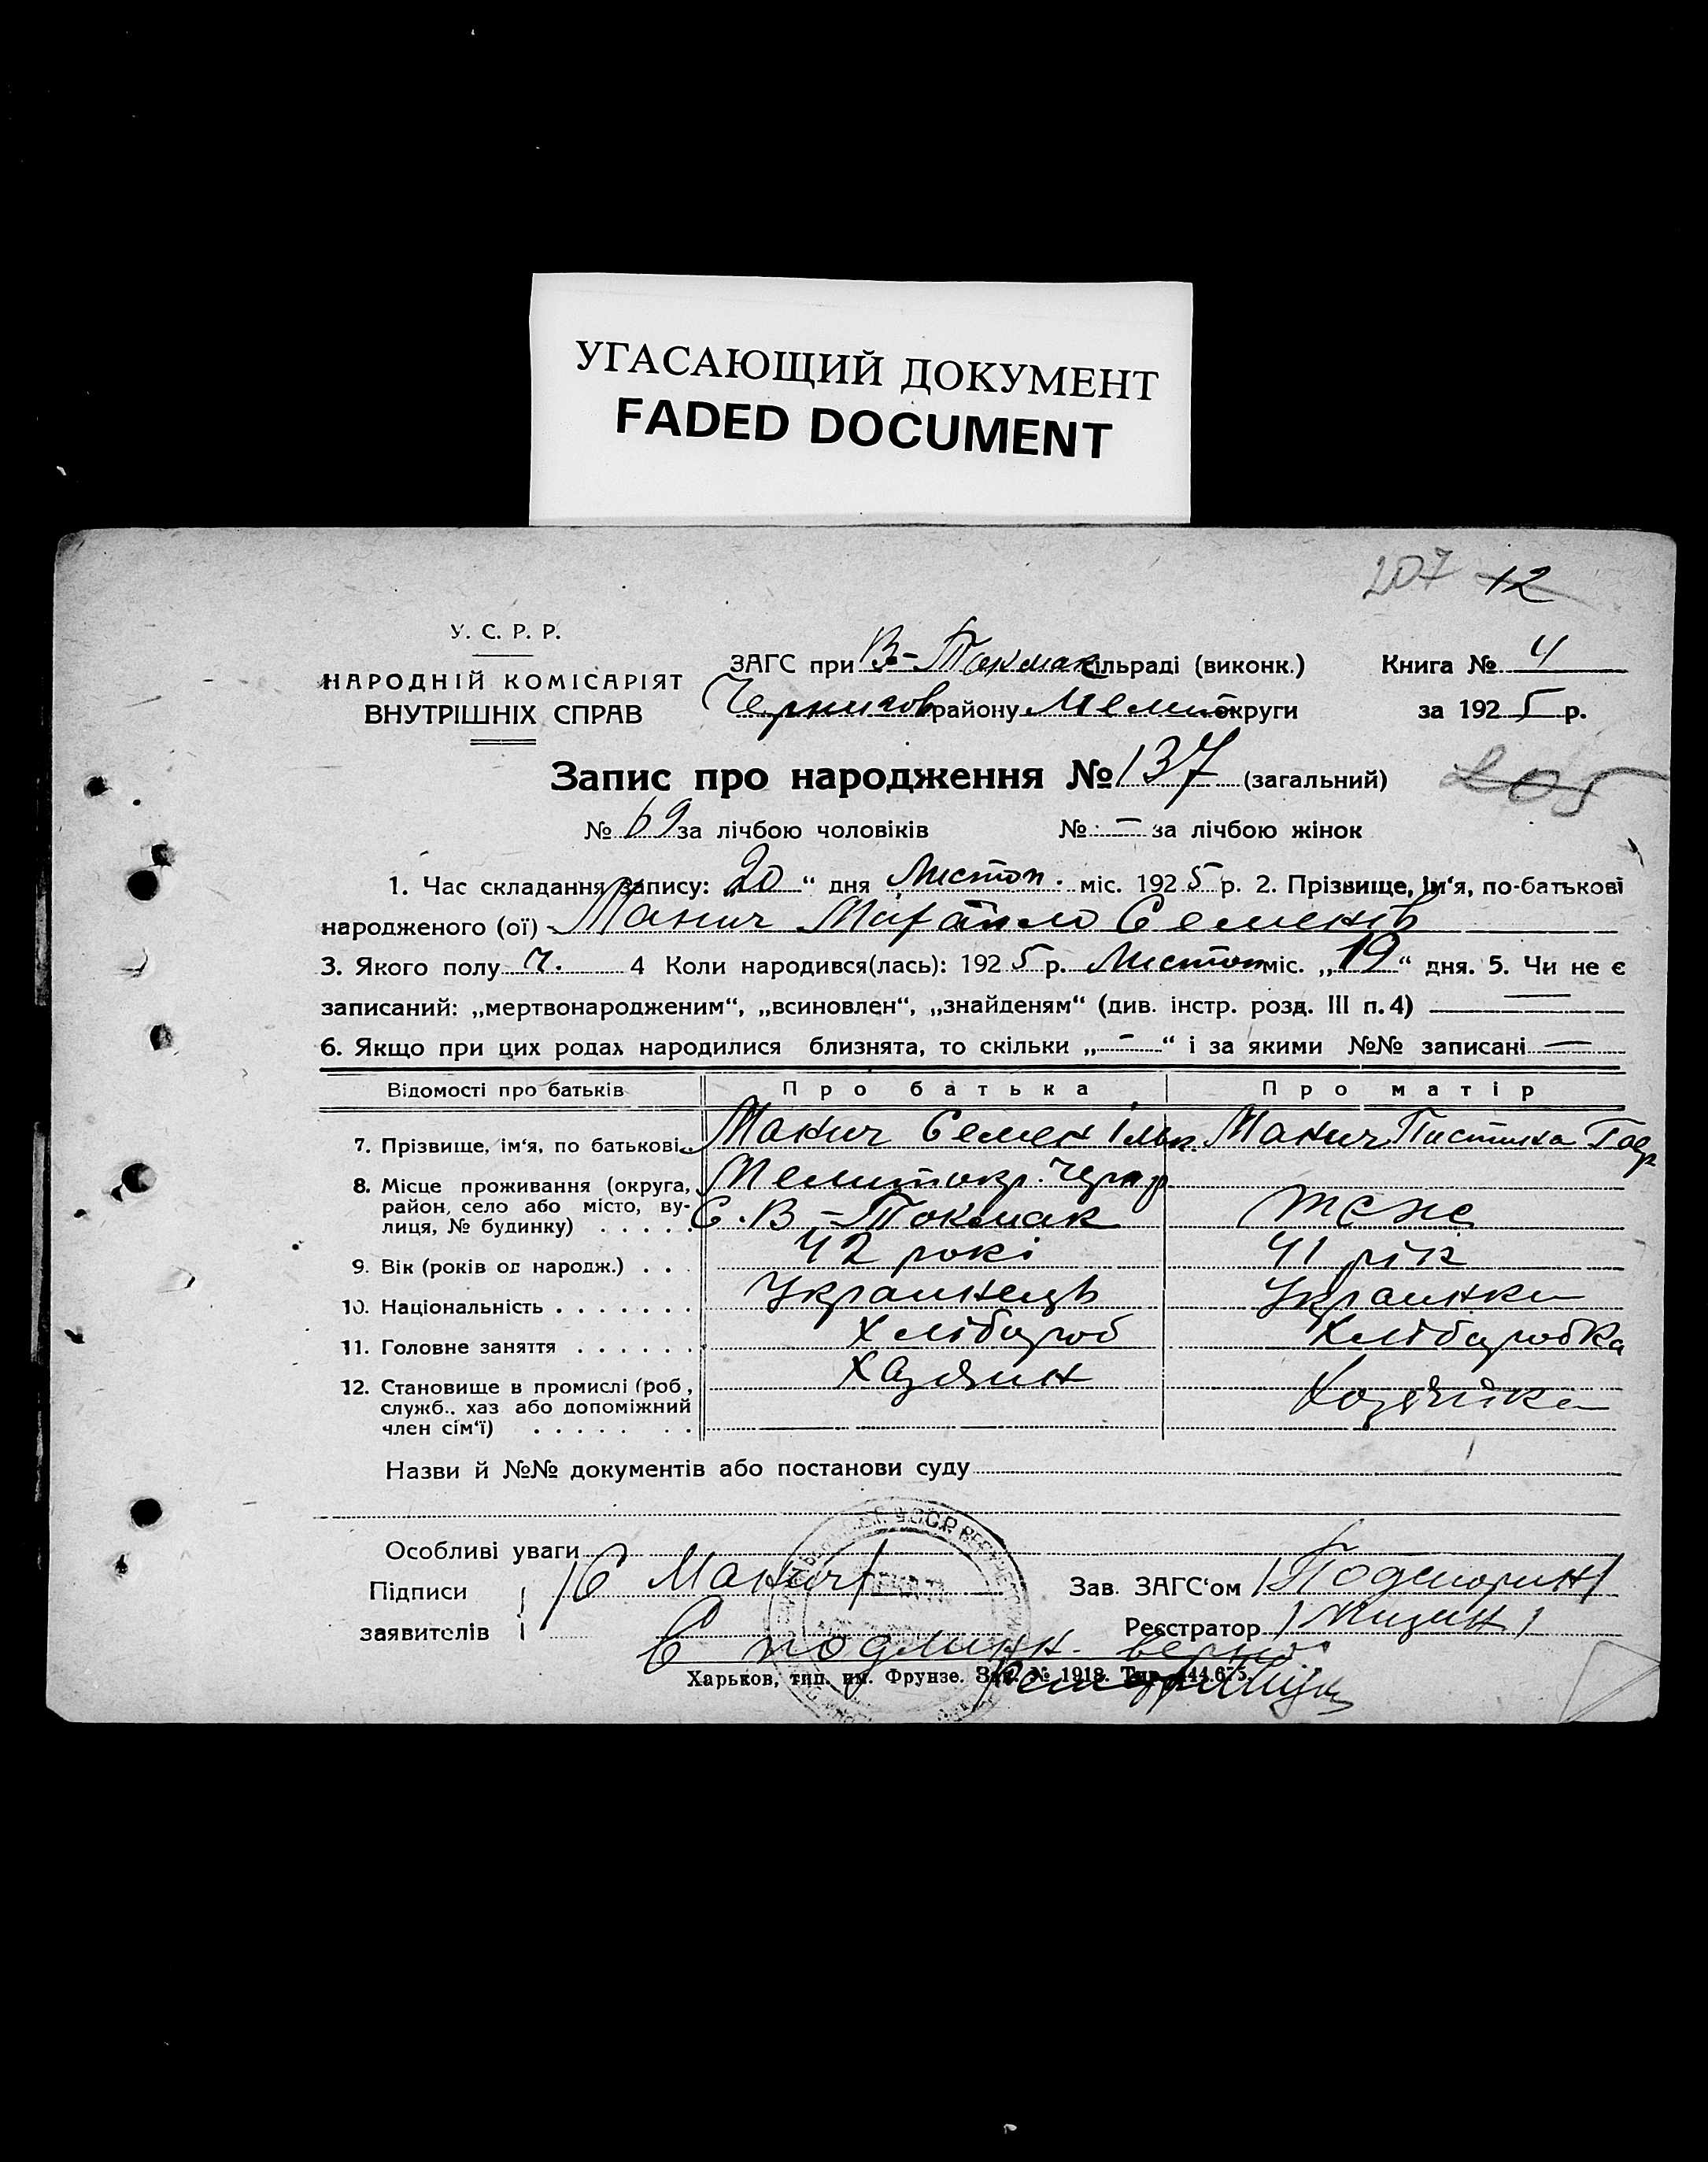 УГАСАЮЩИЙ ДОКУМЕНТ
FADED DOCUMENT
207 12
У. С. Р. Р.
НАРОДНІЙ КОМІСАРІЯТ
ВНУТРІШНІХ СПРАВ
ЗАГС при В-Токмак сільраді (виконк.) Книга № 4
Чернигов району Мелит округи за 1925 р.
Запис про народження № 137 (загальний)
205
№ 69 за лічбою чоловіків № - за лічбою жінок
1. Час складання запису: 20 “ дня Листоп. міс. 1925 р. 2. Прізвище, ім‘я, по-батькові
народженого (ої) Манич Михайло Семенів
3. Якого полу ч. 4 Коли народився(лась): 1925 р. Листоп міс. „19“ дня. 5. Чи не є
записаний: „мертвонародженим“, „всиновлен“, „знайденям“ (див. інстр. розд. III п. 4) —
6. Якщо при цих родах народилися близнята, то скільки „-“ і за якими №№ записані —
Відомості про батьків Про батька Про матір
7. Прізвище, ім‘я, по батькові Манич Семен Ільк. Манич Пистина
8. Місце проживання (округа, район, село або місто, вулиця, № будинку) . . . . .
Мелитокр. Черн р
С. В-Токмак теж
9. Вік (років од народж.) . . . 42 рокі 41 рік
10. Національність . . . . . . . Украинець Украинка
11. Головне заняття . . . . . . Хлібороб Хліборобка
12. Становище в промислі (роб., служб., хаз або допоміжний член сім‘ї) . . . . . . . Хазяин Хозяйка
Назви й №№ документів або постанови суду
Особливі уваги
Підписи
заявителів
/С Манич/
Зав. ЗАГС‘ом /
Реєстратор /
С подлинн. верно
Харьков, тип. им. Фрунзе. Зак. № 1918.